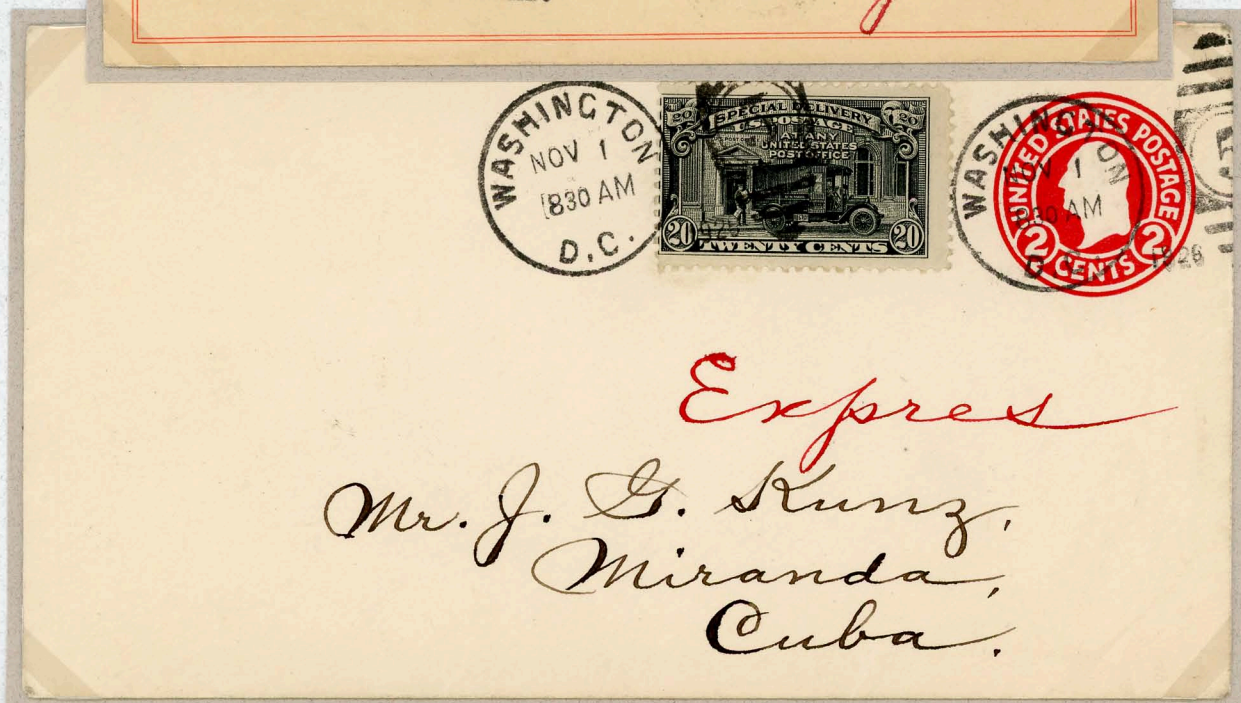 WASHINGTON
NOV 1
830 AM
D.C.
20 SPECIAL DELIVERY 20
U.S. POSTAGE
AT ANY
UNITED STATES
POST OFFICE
20 TWENTY CENTS 20
WASHINGTON
NOV 1
830 AM
D.C.
1928
UNITED STATES POSTAGE
2 CENTS 2
5
Expres
Mr. J. G. Kunz,
Miranda,
Cuba.